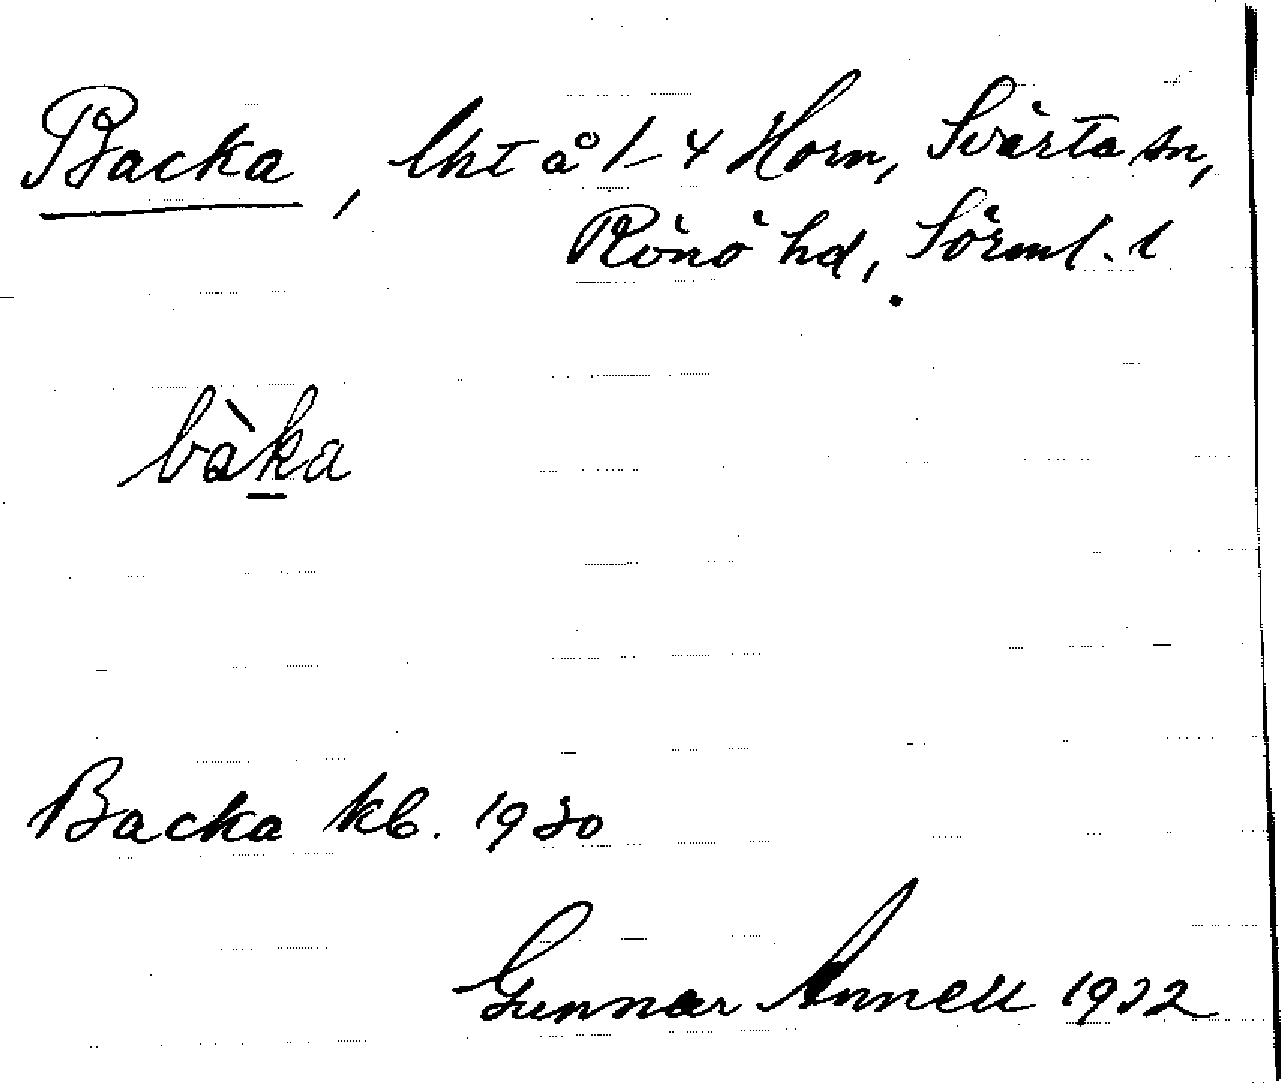 Backa, lht å 1-4 Horn, Svärta sn,
Rönö hd, Sörml. l
bàka
Backa kb. 1930
Gunnar Annell 1932